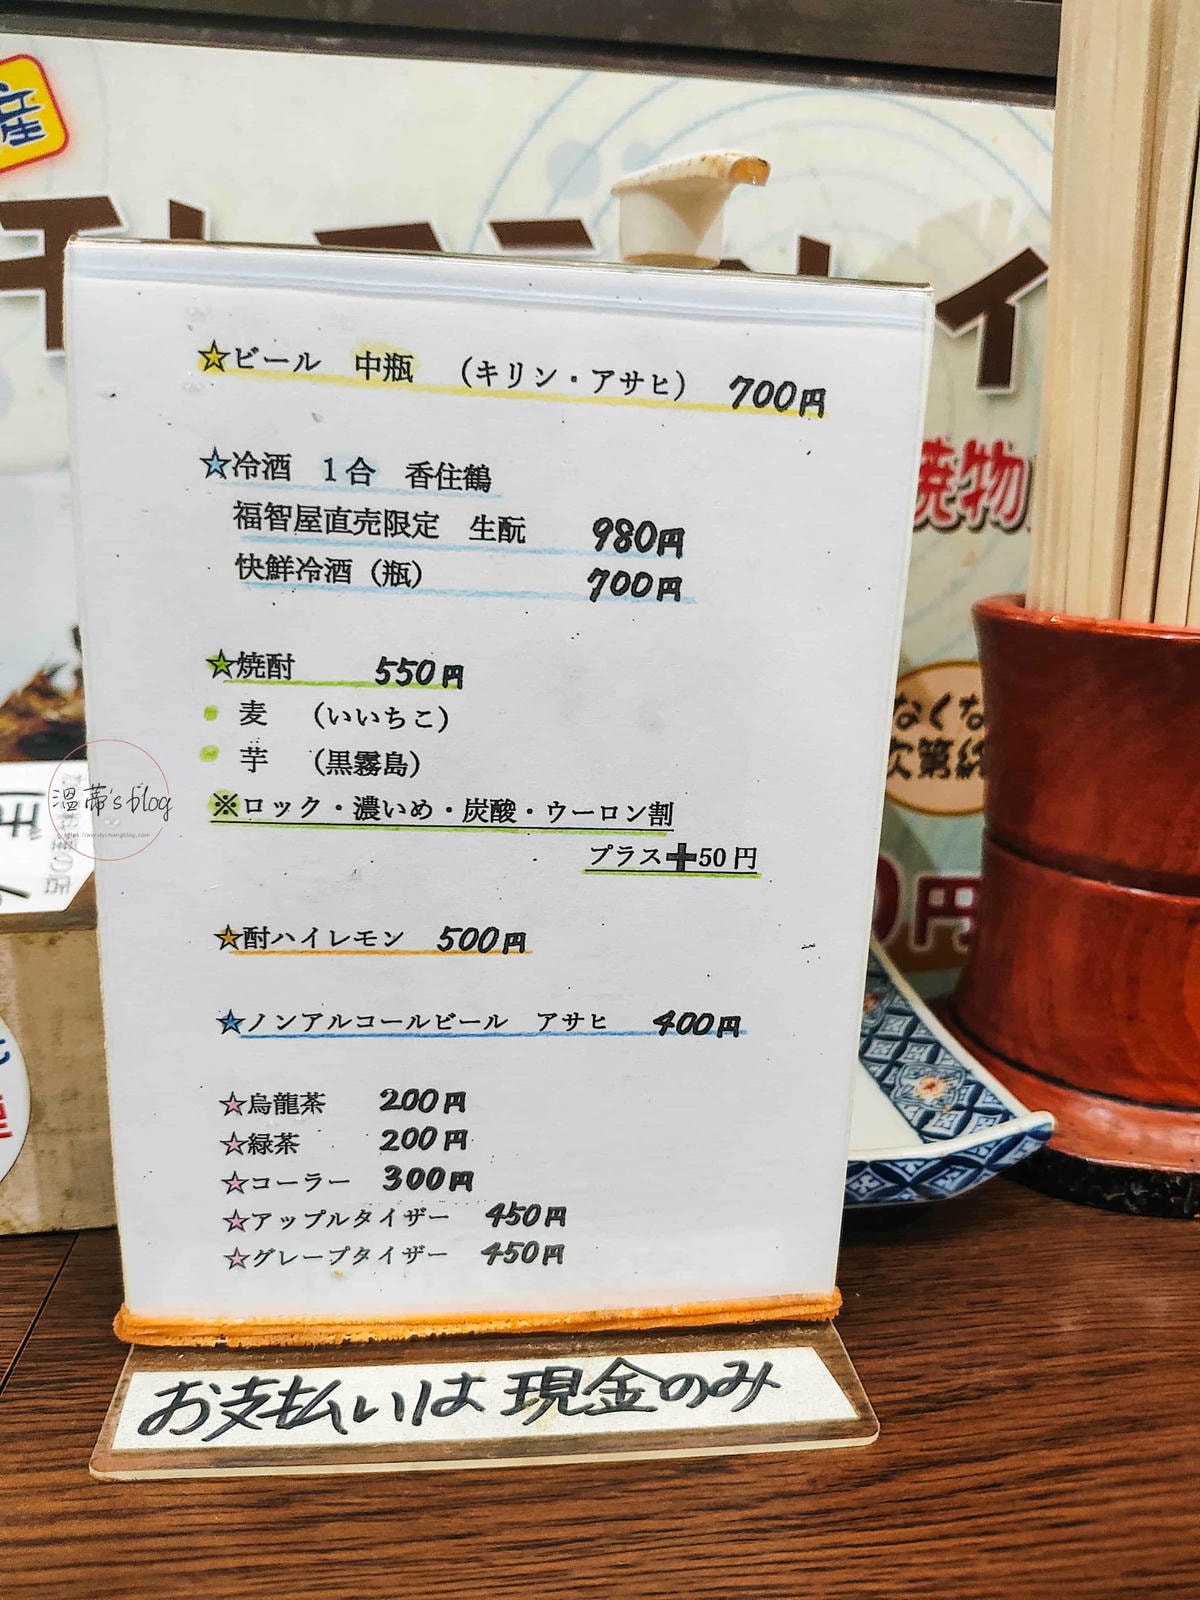 産
☆ビール 中瓶 (キリン・アサヒ) 700円
☆冷酒 1合 香住鶴
福智屋直売限定 生酛 980円
快鮮冷酒(瓶) 700円
☆焼酎 550円
麦 (いいちこ)
芋 (黒霧島)
※ロック・濃いめ・炭酸・ウーロン割
プラス➕50円
☆酎ハイレモン 500円
☆ノンアルコールビール アサヒ 400円
☆烏龍茶 200円
☆緑茶 200円
☆コーラー 300円
☆アップルタイザー 450円
☆グレープタイザー 450円
お支払いは現金のみ
焼物
なくな
次第終
0円
の店
溫蒂's blog